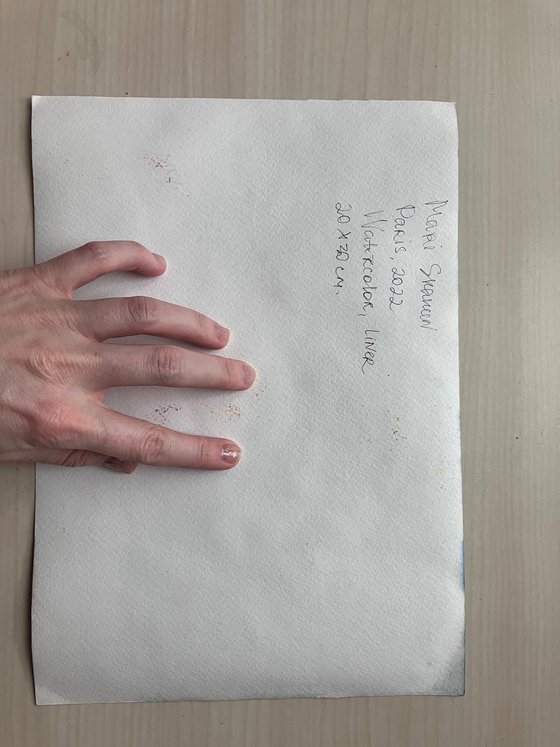 Mari
Paris, 2022
Watercolor, liner
20 x 30 cm.